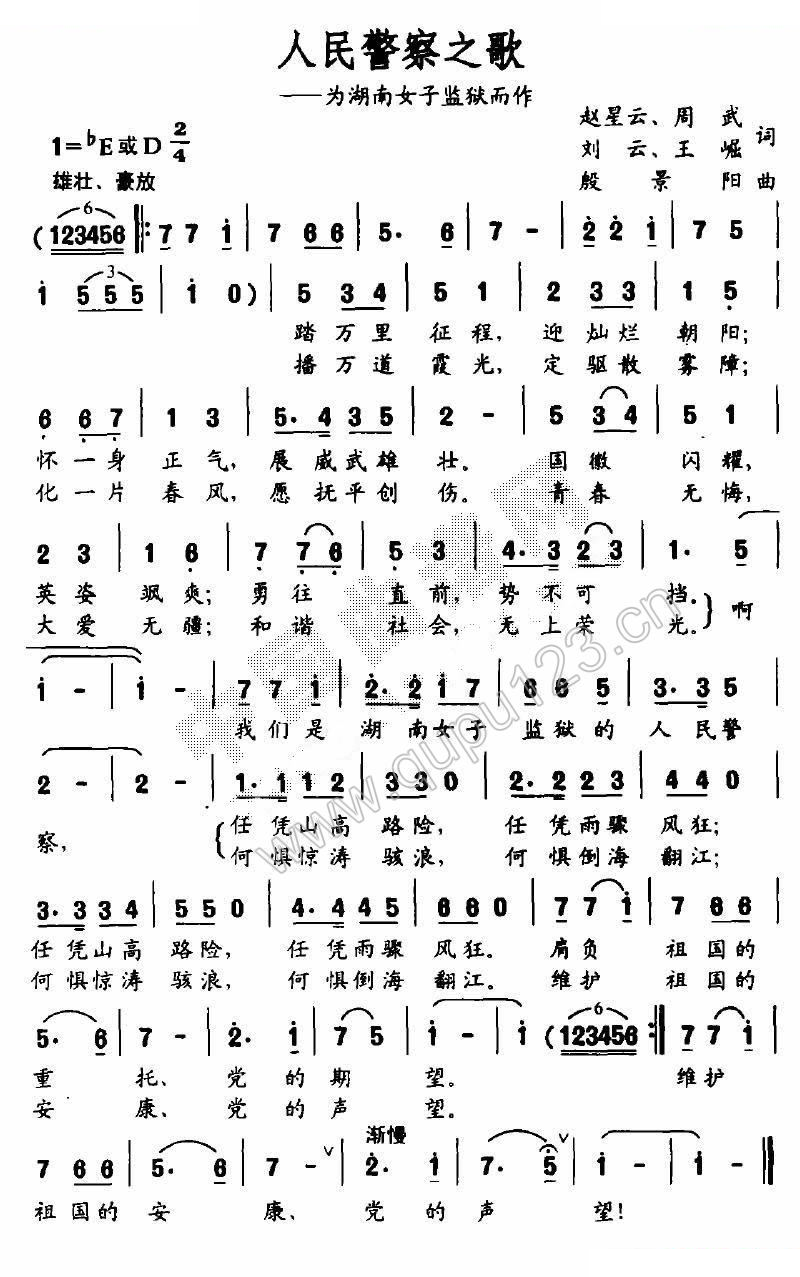 人民警察之歌
——为湖南女子监狱而作
赵星云、周 武
刘 云、王 崛 词
殷 景 阳 曲
1=♭E或D 2/4
雄壮、豪放
(123456 |: 7 7 i | 7 6 6 | 5· 6 | 7 - | 2 2 i | 7 5 |
i 5 5 5 | i 0 ) | 5 3 4 | 5 1 | 2 3 3 | 1 5 |
踏 万 里 征 程, 迎 灿 烂 朝 阳;
播 万 道 霞 光, 定 驱 散 雾 障;
6 6 7 | 1 3 | 5· 4 3 5 | 2 - | 5 3 4 | 5 1 |
怀 一 身 正 气, 展 威 武 雄 壮。 国 徽 闪 耀,
化 一 片 春 风, 愿 抚 平 创 伤。 青 春 无 悔,
2 3 | 1 6 | 7 7 6 | 5 3 | 4· 3 2 3 | 1· 5 |
英 姿 飒 爽; 勇 往 直 前, 势 不 可 挡。 啊
大 爱 无 疆; 和 谐 社 会, 无 上 荣 光。
i - | i - | 7 7 i | 2· 2 i 7 | 6 6 5 | 3· 3 5 |
我 们 是 湖 南 女 子 监 狱 的 人 民 警
2 - | 2 - | 1· 1 1 2 | 3 3 0 | 2· 2 2 3 | 4 4 0 |
察, 任 凭 山 高 路 险, 任 凭 雨 骤 风 狂;
何 惧 惊 涛 骇 浪, 何 惧 倒 海 翻 江;
3· 3 3 4 | 5 5 0 | 4· 4 4 5 | 6 6 0 | 7 7 i | 7 6 6 |
任 凭 山 高 路 险, 任 凭 雨 骤 风 狂。 肩 负 祖 国 的
何 惧 惊 涛 骇 浪, 何 惧 倒 海 翻 江。 维 护 祖 国 的
5· 6 | 7 - | 2· i | 7 5 | i - | i (123456 :| 7 7 i |
重 托、 党 的 期 望。 维 护
安 康、 党 的 声 望。
渐慢
7 6 6 | 5· 6 | 7 - ∨ | 2· i | 7· 5 ∨ | i - | i - ‖
祖 国 的 安 康、 党 的 声 望!
www.qupu123.cn